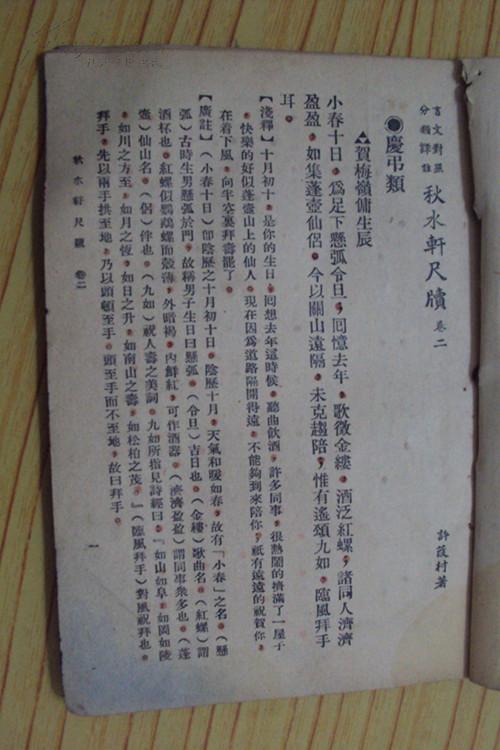 言文對照
分類譯註
秋水軒尺牘 卷二
許葭村著
●慶弔類
賀梅嶺傭生辰
小春十日，爲足下懸弧令旦，囘憶去年，歌徵金縷，酒泛紅螺，諸同人濟濟
盈盈，如集蓬壺仙侶。今以關山遠隔，未克趨陪，惟有遙頌九如，臨風拜手
耳。
【淺釋】十月初十，是你的生日，囘想去年這時候，聽曲飲酒，許多同事，很熱鬧的擠滿了一屋子
，快樂的好似蓬壺山上的仙人。現在因爲道路隔開得遠，不能夠到來陪你，祇有遠遠的祝賀你，
在着下風，向半空裏拜壽罷了。
【廣註】（小春十日）卽陰歷之十月初十日。陰歷十月，天氣和暖如春，故有「小春」之名。（懸
弧）古時生男懸弧於門，故稱男子生日曰懸弧。（令旦）吉日也。（金縷）歌曲名。（紅螺）謂
酒杯也。紅螺似鸚鵡螺而殼薄，外暗褐，內鮮紅，可作酒器。（濟濟盈盈）謂同事衆多也。（蓬
壺）仙山名。（侶）伴也。（九如）祝人壽之美詞。九如所指見詩經曰：『如山如阜，如岡如陵
，如川之方至，如月之恆，如日之升，如南山之壽，如松柏之茂。』（臨風拜手）對風祝拜也。
拜手，先以兩手拱至地，乃以頭頓至手。頭至手而不至地，故曰拜手。
秋水軒尺牘 卷二
一